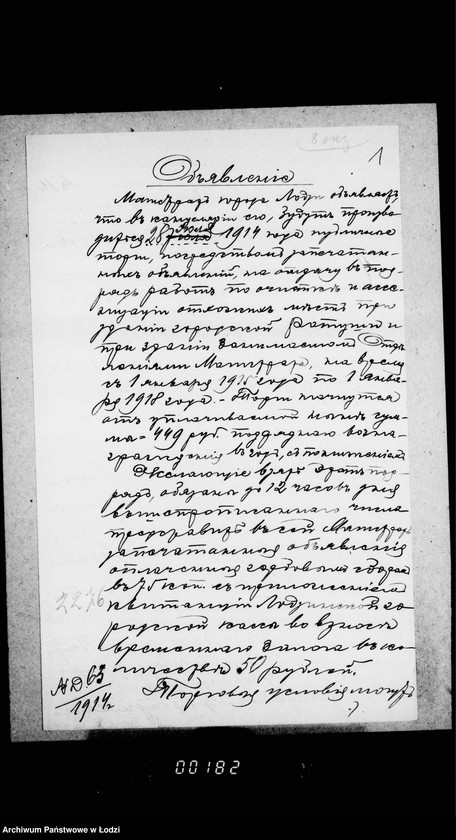 1
Объявленіе
Магистратъ города Лодзи объявляетъ
что въ канцеляріи его, будутъ произво
дится 28 1914 года публичные
торги, посредствомъ запечатан-
ныхъ объявленій, на отдачу въ под-
рядъ работъ по очисткѣ и ассе-
низаціи отхожихъ мѣстъ при
зданіи городской Ратуши и
при зданіи занимаемомъ Отдѣ
леніями Магистрата, на время
съ 1 января 1915 года по 1 янва-
ря 1918 года. - Торги начнутся
отъ уплачиваемой нынѣ сум-
мы - 449 руб. подряднаго возна-
гражденія въ годъ, съ пониженіемъ
Желающіе взять этотъ под-
рядъ, обязаны до 12 часовъ дня
вышепрописаннаго числа
представить въ сей Магистратъ
запечатанныя объявленія
оплаченныя гербовымъ сборомъ
въ 75 коп. съ приложеніемъ
квитанціи Лодзинской го
родской кассы во взносѣ
временнаго залога въ ко-
личествѣ 50 рублей.
Торговыя условія могутъ
2276
№ Д 63
1914 г
00182
Archiwum Państwowe w Łodzi